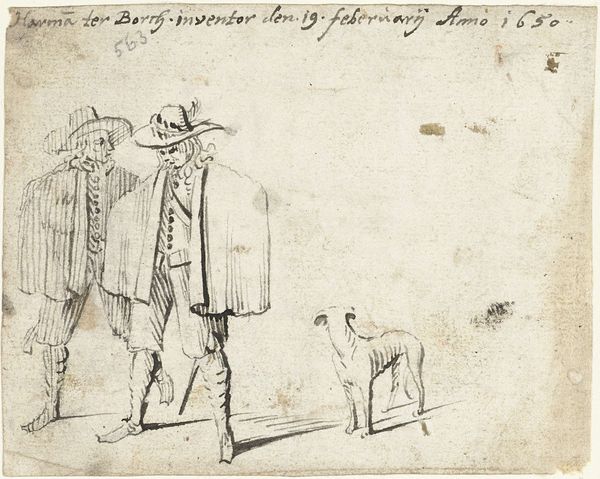 Harmã ter Borch · inventor den · 19 · feberuarij Anno 1650 ·
563